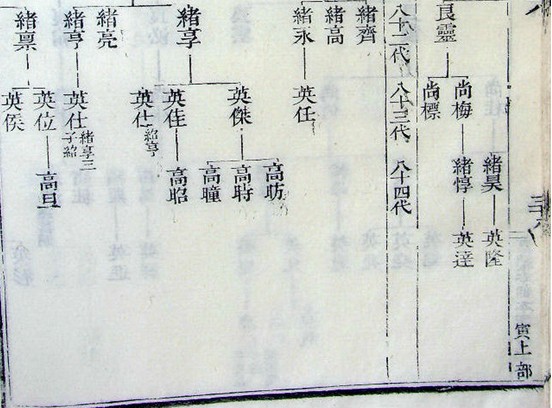 寅上部
緒昊
英隆
良靈
尚梅
緒惇
英逹
尚標
八十二代
八十三代
八十四代
緒齊
緒高
緒永
英任
緒享
英傑
高昉
高時
高曈
英佳
高昭
英仕
紹亨
緒亮
緒亨
英仕
緒享三
子紹
緒禀
英位
高旦